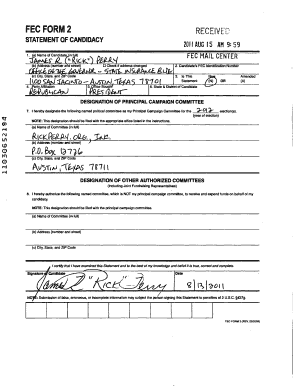 FEC FORM 2
STATEMENT OF CANDIDACY
RECEIVED
2011 AUG 15 AM 9:59
FEC MAIL CENTER
1. (a) Name of Candidate (in full)
JAMES R. ("RICK") PERRY
(b) Address (number and street) Check if address changed
2. Candidate's FEC Identification Number
OFFICE OF THE GOVERNOR - STATE INSURANCE BLDG
(c) City, State, and ZIP Code
3. Is This Statement New (N) OR Amended (A)
1100 SAN JACINTO - AUSTIN, TEXAS 78701
4. Party Affiliation
5. Office Sought
6. State & District of Candidate
REPUBLICAN
PRESIDENT
DESIGNATION OF PRINCIPAL CAMPAIGN COMMITTEE
7. I hereby designate the following named political committee as my Principal Campaign Committee for the 2012 election(s).
(year of election)
NOTE: This designation should be filed with the appropriate office listed in the instructions.
(a) Name of Committee (in full)
RICKPERRY.ORG, INC.
(b) Address (number and street)
P.O. BOX 13776
(c) City, State, and ZIP Code
AUSTIN, TEXAS 78711
DESIGNATION OF OTHER AUTHORIZED COMMITTEES
(Including Joint Fundraising Representatives)
8. I hereby authorize the following named committee, which is NOT my principal campaign committee, to receive and expend funds on behalf of my candidacy.
NOTE: This designation should be filed with the principal campaign committee.
(a) Name of Committee (in full)
(b) Address (number and street)
(c) City, State, and ZIP Code
I certify that I have examined this Statement and to the best of my knowledge and belief it is true, correct and complete.
Signature of Candidate
Date
James R "Rick" Perry
8/13/2011
NOTE: Submission of false, erroneous, or incomplete information may subject the person signing this Statement to penalties of 2 U.S.C. §437g.
11030652194